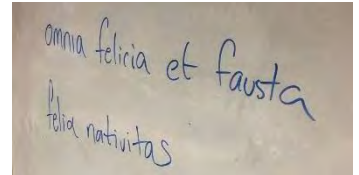 omnia felicia et fausta
felix nativitas